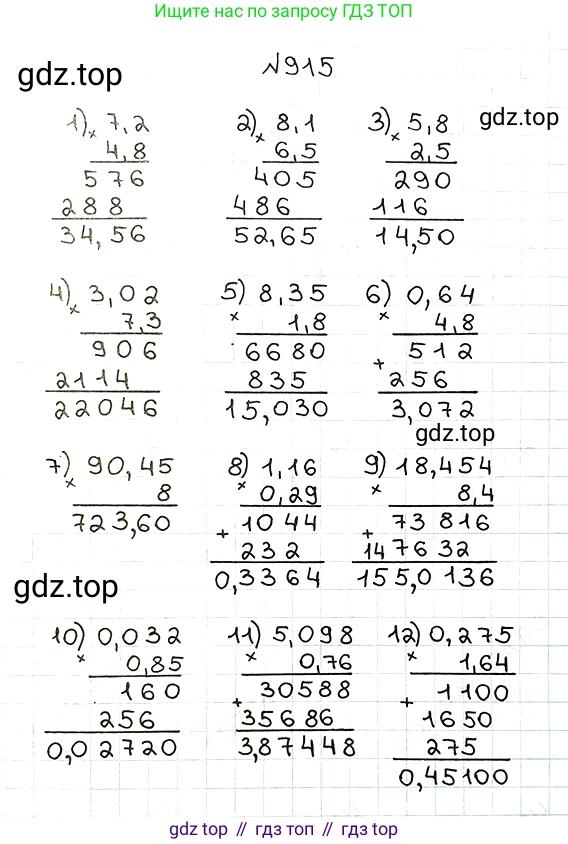 Ищите нас по запросу ГДЗ ТОП
№915
gdz.top
1) 7,2 2) 8,1 3) 5,8 gdz.top
× 4,8 × 6,5 × 2,5
576 405 290
288 486 116
34,56 52,65 14,50
4) 3,02 5) 8,35 6) 0,64
× 7,3 × 1,8 × 4,8
906 6680 + 512
2114 835 256
22046 15,030 3,072
gdz.top
7) 90,45 8) 1,16 9) 18,454
× 8 × 0,29 × 8,4
723,60 + 1044 + 73816
232 147632
0,3364 155,0136
gdz.top
10) 0,032 11) 5,098 12) 0,275
× 0,85 × 0,76 × 1,64
160 + 30588 + 1100
256 35686 1650
0,02720 3,87448 275
0,45100
gdz.top // гдз топ // гдз.топ